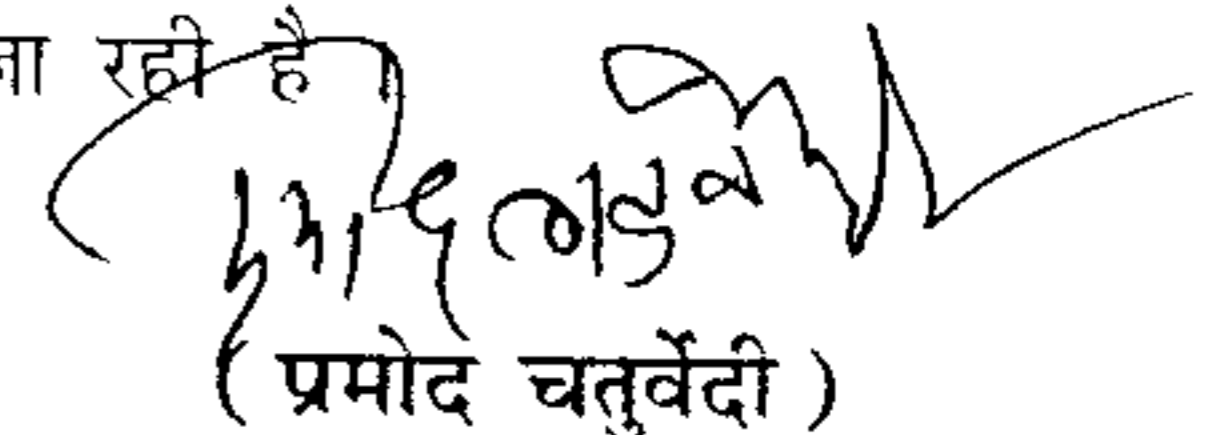 ना रही है ।
( प्रमोद चतुर्वेदी )